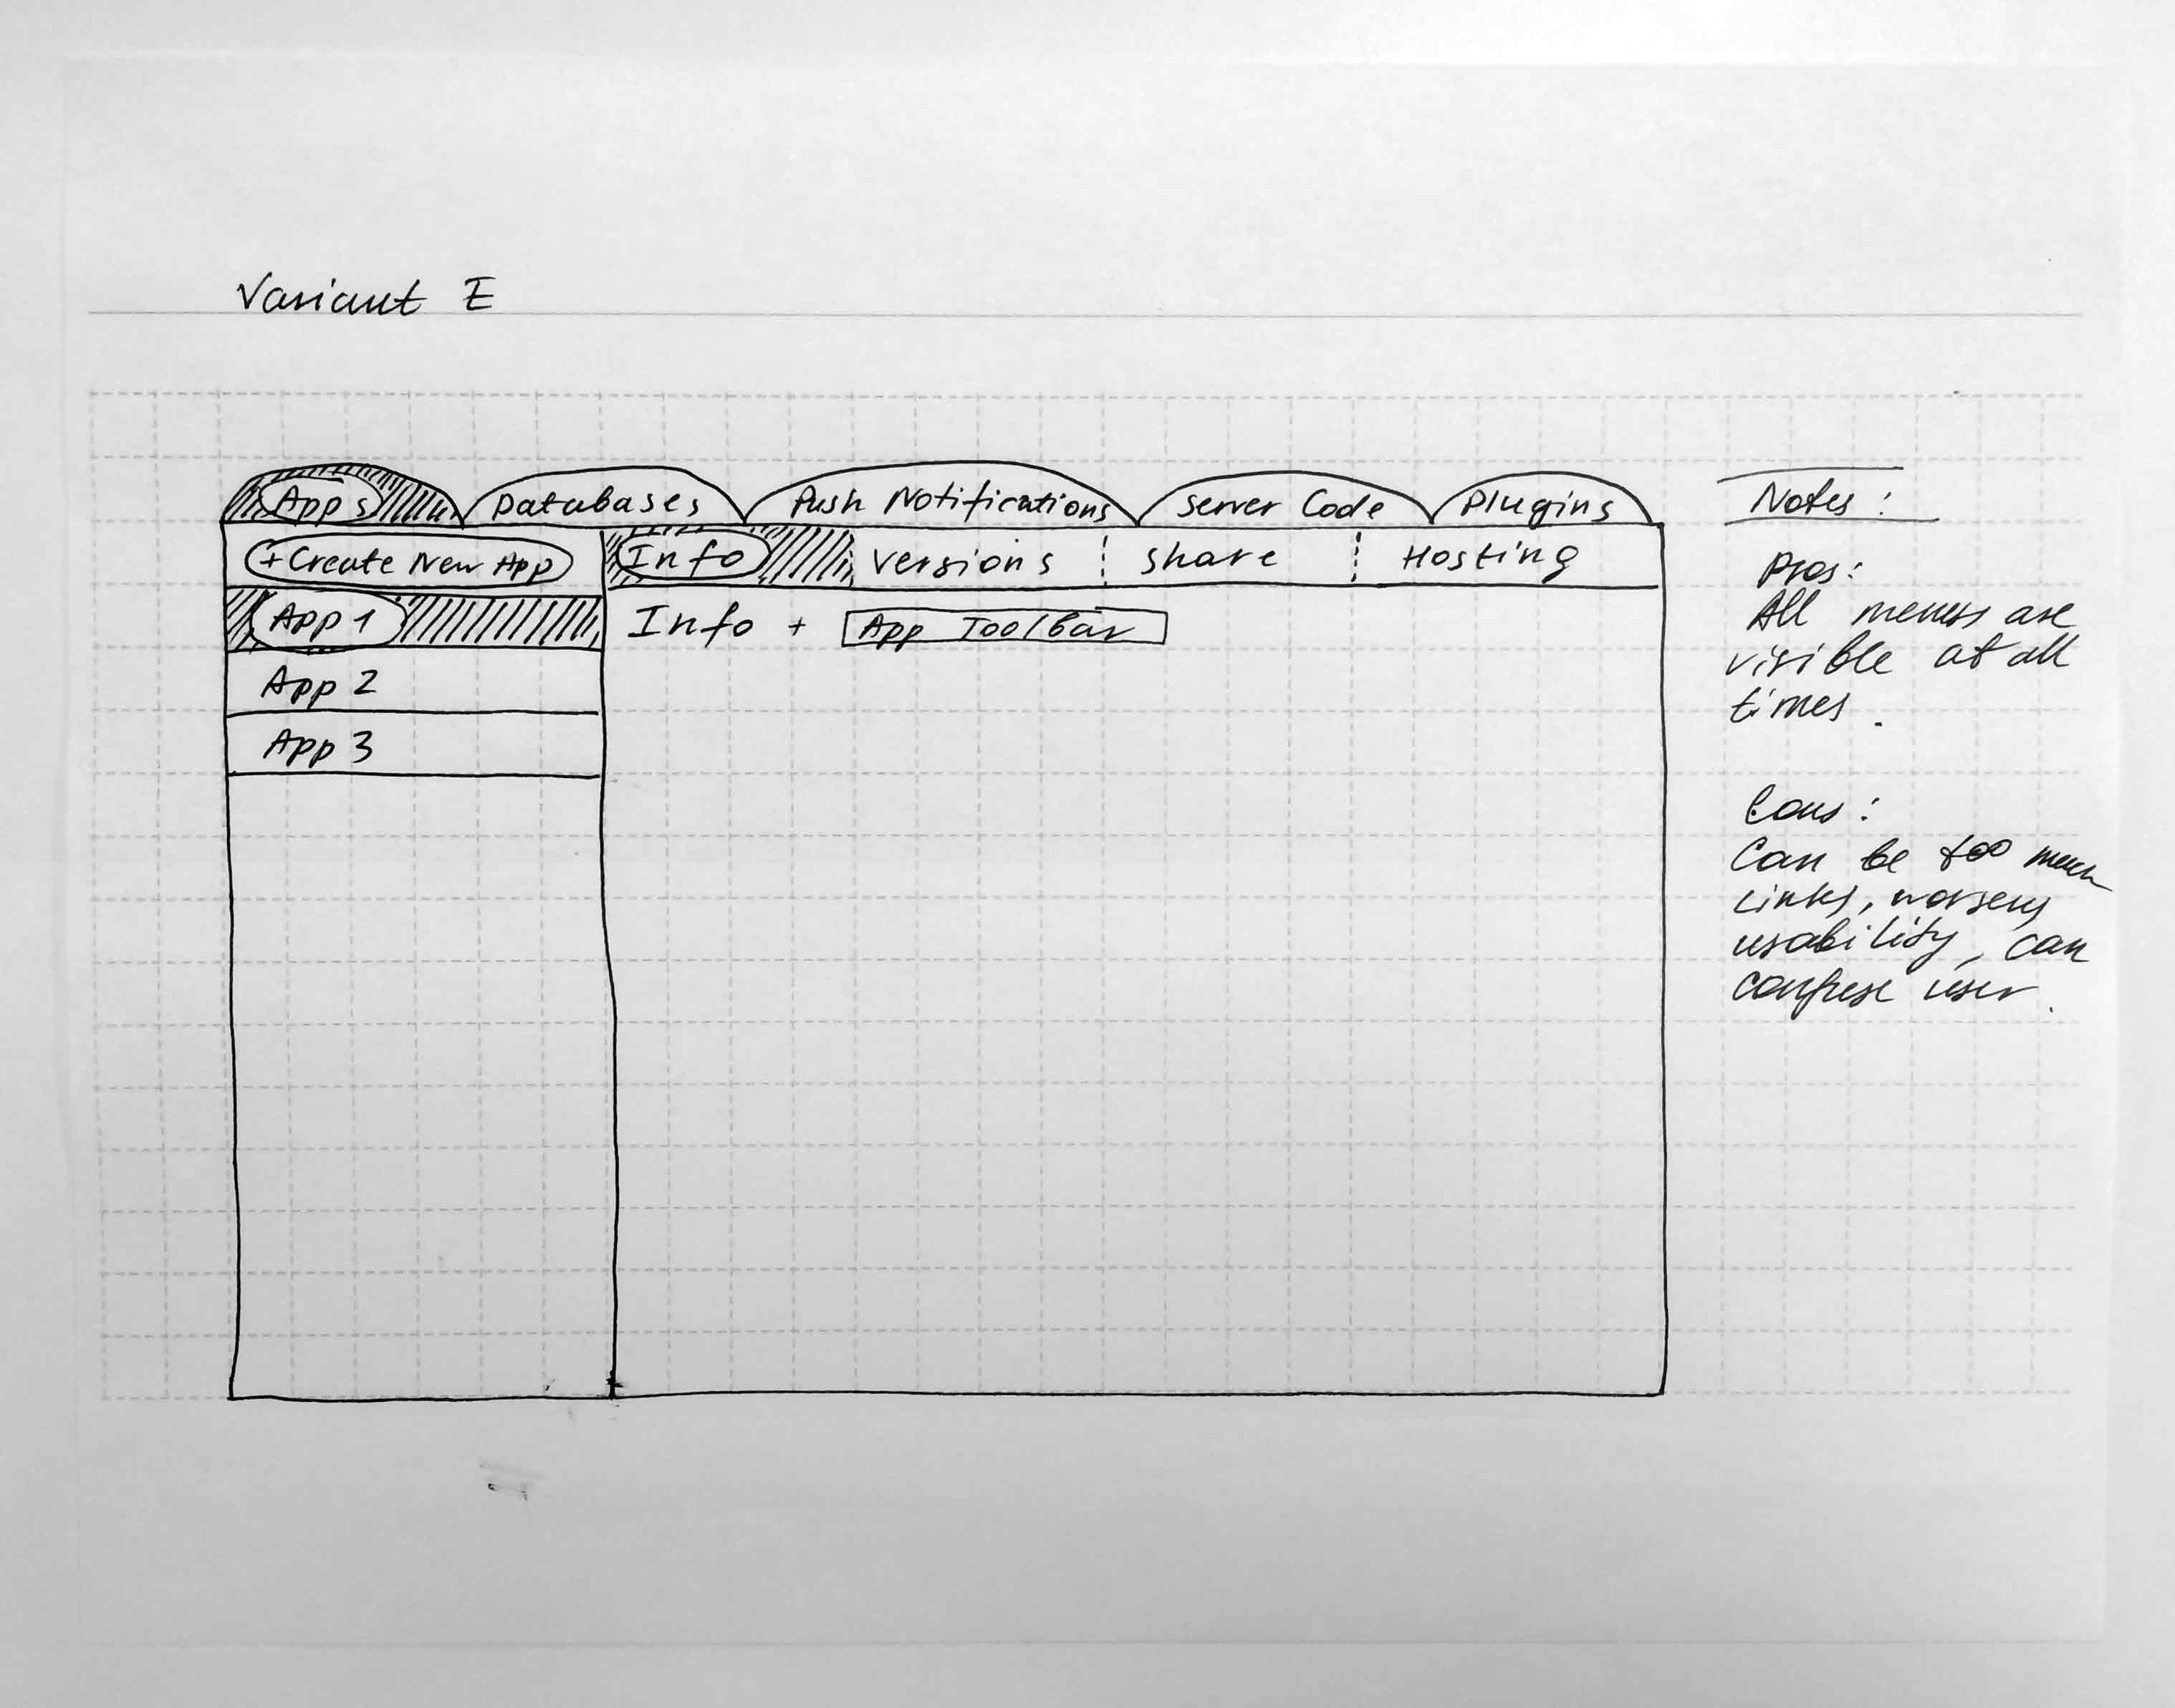 Variant E
Apps Databases Push Notifications Server Code Plugins
+Create New App Info Versions Share Hosting
App 1 Info + App Toolbar
App 2
App 3
Notes:
Pros:
All menus are
visible at all
times.
Cons:
Can be too much
Links, worsens
usability, can
confuse user.